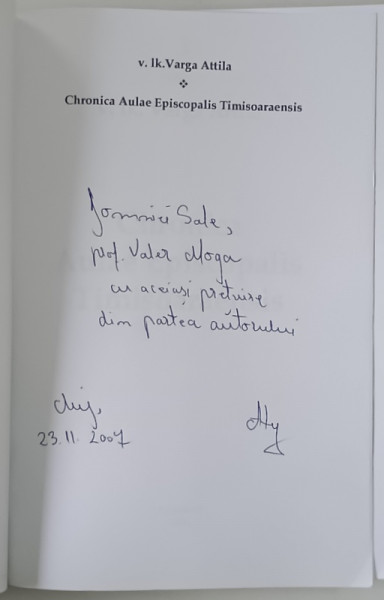 v. lk.Varga Attila
❖
Chronica Aulae Episcopalis Timisoaraensis
Domniei Sale,
prof. Valer Moga
cu aceiași prețuire
din partea autorului
Cluj,
23.11.2007